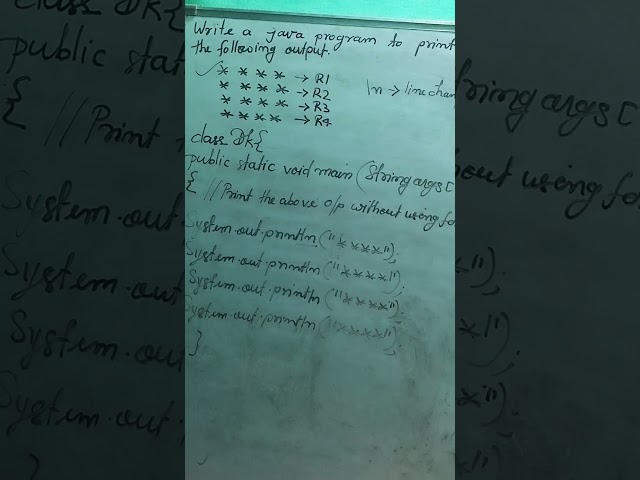 Write a java program to print
the following output.
✓ * * * * → R1
* * * * → R2 \n → line chan
* * * * → R3
* * * * → R4
class Dk{
public static void main (String args [
{ // Print the above o/p without using fo
System.out.println ("****");
System.out.println ("****");
System.out.println ("****");
System.out.println ("****");
}